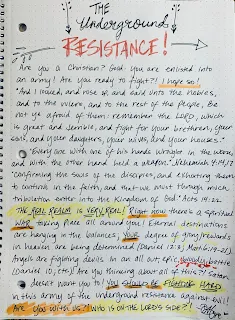 THE
Underground
RESISTANCE!
Are you a Christian? Good. You are enlisted into
an army! Are you ready to fight?! I hope so!
"And I looked, and rose up, and said unto the nobles,
and to the rulers, and to the rest of the people, Be
not ye afraid of them: remember the LORD, which
is great and terrible, and fight for your brethren, your
sons, and your daughters, your wives, and your houses."
"Every one with one of his hands wrought in the work,
and with the other hand held a weapon." Nehemiah 4:14,17
"Confirming the souls of the disciples, and exhorting them
to continue in the faith, and that we must through much
tribulation enter into the Kingdom of God." Acts 14:22
THE REAL REALM is VERY REAL! Right now there's a spiritual
WAR taking place all around you! Eternal destinations
are hanging in the balances; YOUR degree of glory/rewards
in heaven are being determined (Daniel 12:3; Matt 6:19-21)
Angels are fighting devils in an all out epic battle
(Daniel 10, etc.) Are you thinking about all of this?! Satan
doesn't want you to! YOU SHOULD BE FIGHTING HARD
in this army of the underground resistance against evil!
Are YOU WITH US? WHO IS ON THE LORD'S SIDE?!